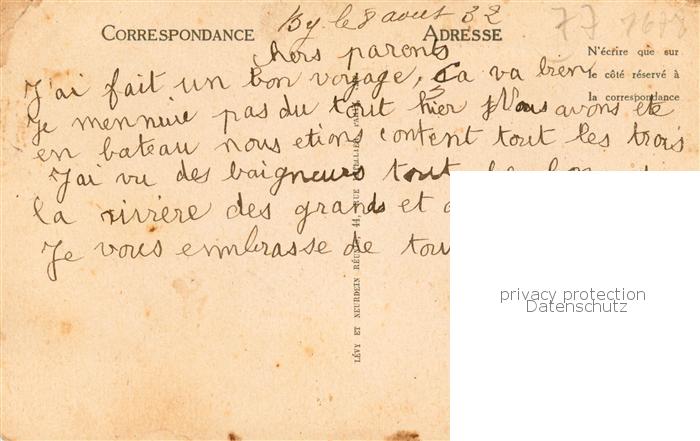 By le 8 aout 32
77 1678
CORRESPONDANCE
ADRESSE
N'écrire que sur
le côté réservé à
la correspondance
chers parents
J'ai fait un bon voyage, Ca va bien
Je mennuie pas du tout hier Nous avons été
en bateau nous etions content tout les trois
J'ai vu des baigneurs tout
la rivière des grands et
Je vous embrasse de tou
LÉVY ET NEURDEIN RÉUNIS, 44, RUE LETELLIER, PARIS
privacy protection
Datenschutz